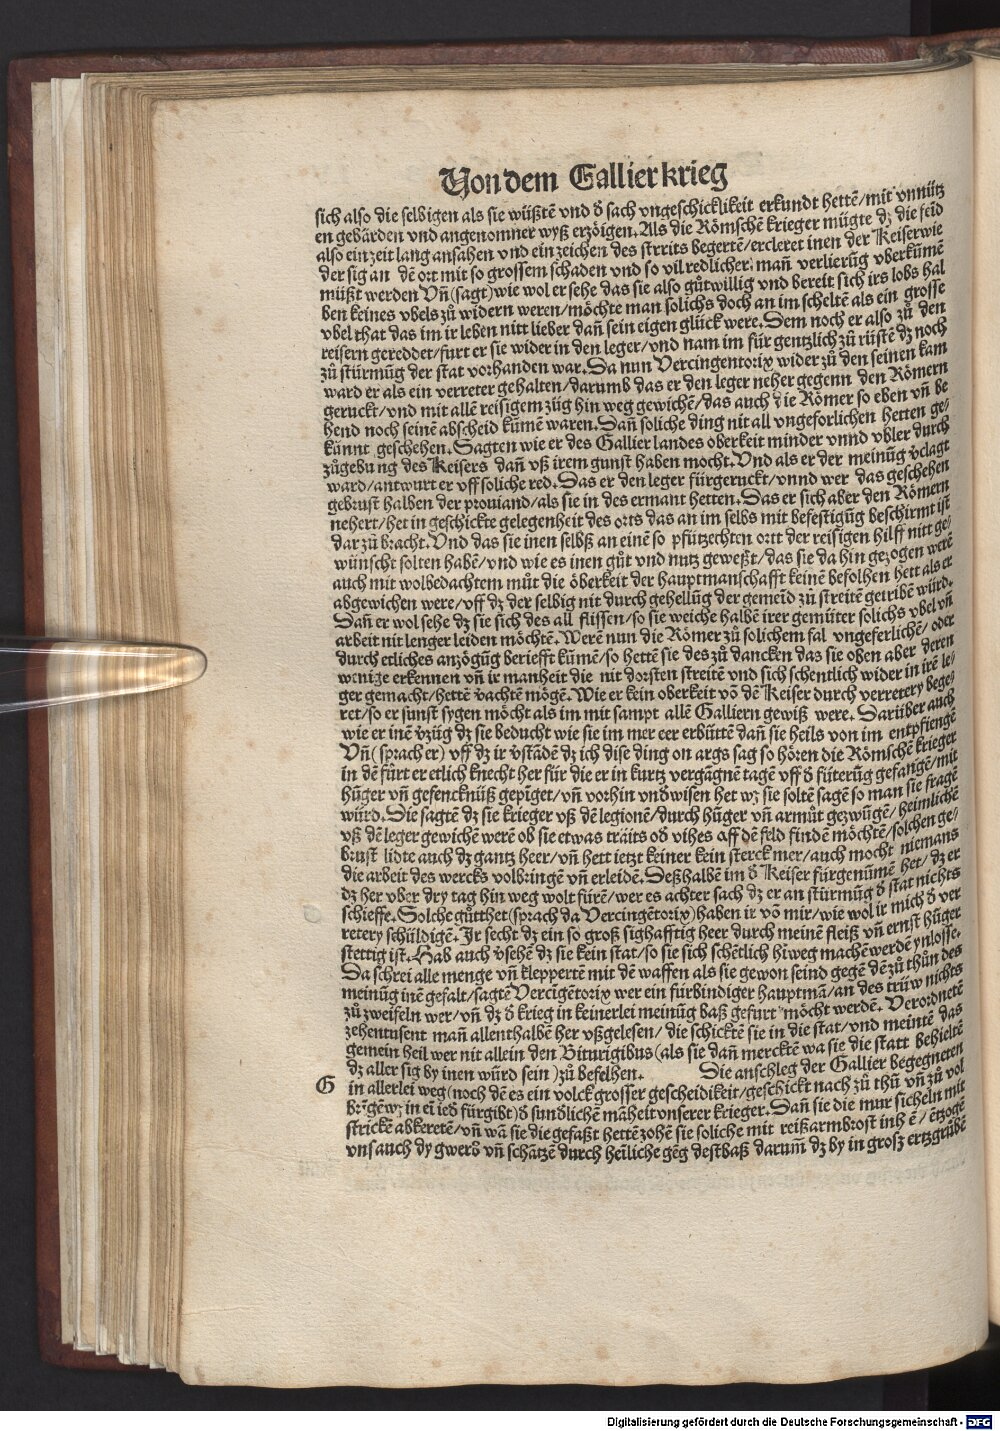 Von dem Gallier krieg
sich also die selbigen als sie wüßtē vnd d̄ sach vngeschicklikeit erkundt hettē/mit vnnütz
en gebärden vnd angenomner wyß erzöigen. Als die Römschē krieger mügte dz die feid
also ein zeit lang ansahen vnd ein zeichen des strrits begertē/ercleret inen der Keiser wie
der sig an dē ort mit so grossem schaden vnd so vil redlicher mañ verlierūg vberkūmē
müßt werden Vñ (sagt) wie wol er sehe das sie also gůtwillig vnd bereit sich irs lobs hal
ben keines vbels zů widern weren/möchte man solichs doch an im scheltē als ein grosse
vbel that das im ir leben nitt lieber dañ sein eigen glück were. Dem noch er also zů den
reisern gereddet/furt er sie wider in den leger/vnd nam im für gentzlich zů rüstē dz noch
zů stürmūg der stat vorhanden war. Da nun Vercingentorix wider zů den seinen kam
ward er als ein verreter gehalten/darumb das er den leger neher gegenn den Römern
geruckt/vnd mit allē reisigem züg hin weg gewichē/das auch die Römer so eben vñ be
hend noch seinē abscheid kūmē waren. Dañ soliche ding nit all vngeforlichen hetten ge/
künnt geschehen. Sagten wie er des Gallier landes oberkeit minder vnnd vbler durch
zůgebung des Keisers dañ vß irem gunst haben mocht. Vnd als er der meinūg v̄clagt
ward/antwurt er vff soliche red. Das er den leger fürgeruckt/vnnd wer das geschehen
gebrust halben der prouiand/als sie in des ermant hetten. Das er sich aber den Römern
nehert/het in geschickte gelegenheit des orts das an im selbs mit befestigūg beschirmt ist
dar zů bracht. Vnd das sie inen selbß an einē so pfützechten ortt der reisigen hilff nitt ge/
wünscht solten habē/vnd wie es inen gůt vnd nutz geweßt/das sie da hin gezogen werē
auch mit wolbedachtem můt die öberkeit der hauptmanschafft keinē befolhen hett als er
abgewichen were/vff dz der selbig nit durch gehellūg der gemeid zů streitē getribē würd.
Dañ er wol sehe dz sie sich des all flissen/so sie weiche halbē irer gemüter solichs vbel vñ
arbeit nit lenger leiden möchtē. Werē nun die Römer zů solichem fal vngeferlichē/oder
durch etliches anzögūg beriefft kūmē/so hettē sie des zů dancken das sie oben aber deren
wenige erkennen vñ ir manheit die nit dorsten streitē vnd sich schentlich wider in irē le/
ger gemacht/hettē v̄achtē mögē. Wie er kein oberkeit vō dē Keiser durch verretery bege/
ret/so er sunst sygen möcht als im mit sampt allē Galliern gewiß were. Darüber auch
wie er inē v̄züg dz sie beducht wie sie im mer eer erbüttē dañ sie heils von im entpfiengē
Vñ (sprach er) vff dz ir v̄stādē dz ich dise ding on args sag so hören die Römschē krieger
in dē fůrt er etlich knecht her für die er in kurtz vergāgnē tagē vff d̄ fůterūg gefangē/mit
hūger vñ gefencknüß gepiget/vñ vorhin vnd̄wisen het wz sie soltē sagē so man sie fragē
würd. Die sagtē dz sie krieger vß dē legionē/durch hūger vñ armůt gezwūgē/heimlichē
vß dē leger gewichē werē ob sie etwas träits od̄ vihes aff dē feld findē möchtē/solchen ge/
brust lidte auch dz gantz heer/vñ hett ietzt keiner kein sterck mer/auch mocht niemans
die arbeit des wercks volbringē vñ erleidē. Deßhalbē im d̄ Keiser fürgenūmē het/dz er
dz her vber dry tag hin weg wolt fürē/wer es achter sach dz er an stürmūg d̄ stat nichts
schieffe. Solche gůtthet (sprach da Vercingētorix) haben ir vō mir/wie wol ir mich d̄ ver
retery schüldigē. Ir secht dz ein so groß sighafftig heer durch meinē fleiß vñ ernst hūger
stettig ist. Hab auch v̄sehē dz sie kein stat/so sie sich schētlich hiweg machē werdē ynlosse.
Da schrei alle menge vñ kleppertē mit dē waffen als sie gewon seind gegē dē zů thůn des
meinūg inē gefalt/sagtē Vercigētorix wer ein fürbindiger hauptmā/an des trüw nichts
zů zweifeln wer/vñ dz d̄ krieg in keinerlei meinūg baß gefurt möcht werdē. Verordnetē
zehentusent mañ allenthalbē her vßgelesen/die schicktē sie in die stat/vnd meintē das
gemein heil wer nit allein den Biturigibus (als sie dañ mercktē wa sie die statt behieltē
dz aller sig by inen würd sein) zů befelhen. Die anschleg der Gallier begegneten
G in allerlei weg (noch dē es ein volck grosser gescheidikeit/geschickt nach zů thů vñ zů vol
brīgē wz in eī ied̄ fürgibt) d̄ sund̄lichē māheit vnserer krieger. Dañ sie die mur sicheln mit
strickē abkeretē/vñ wā sie die gefaßt hettē zohē sie soliche mit reißarmbrost inhē/ētzogē
vns auch dy gwerb vñ schātzē durch heīliche gēg destbaß darum̄ dz by in grosz ertzgrübē
Digitalisierung gefördert durch die Deutsche Forschungsgemeinschaft - DFG